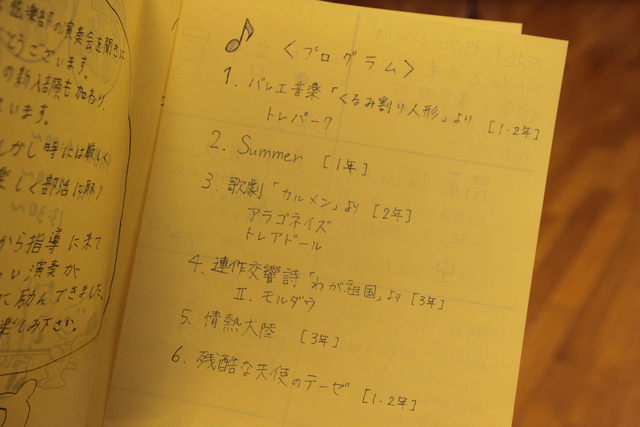 弦楽部の演奏会を聞きに
とうございます。
の新入部員も加わり、
います。
しかし時には厳しく
楽しく部活に取り
から指導に来て
い演奏が
に励んできました。
楽しみ下さい。
〈プログラム〉
1. バレエ音楽「くるみ割り人形」より [1・2年]
トレパーク
2. Summer [1年]
3. 歌劇「カルメン」より [2年]
アラゴネイズ
トレアドール
4. 連作交響詩「わが祖国」より [3年]
Ⅱ. モルダウ
5. 情熱大陸 [3年]
6. 残酷な天使のテーゼ [1・2年]